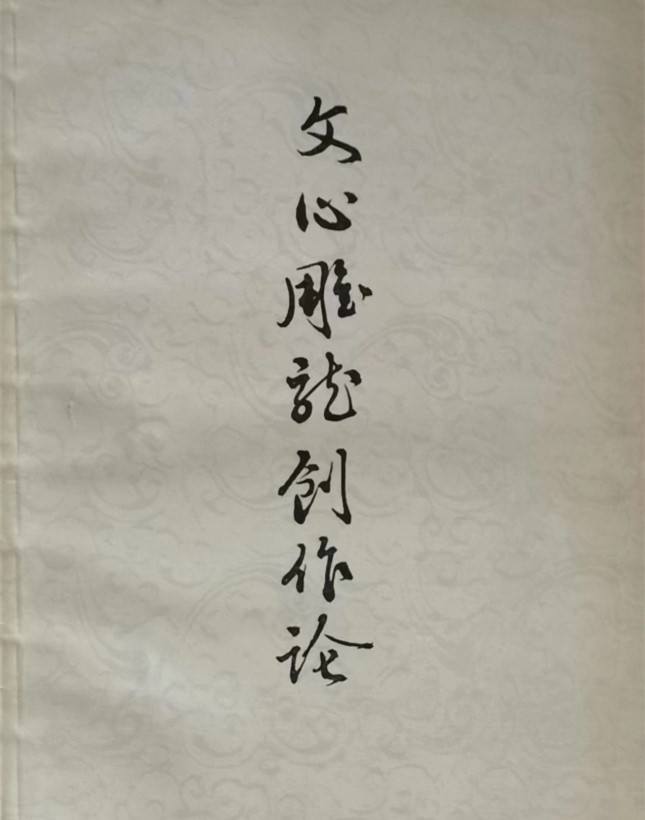 文心雕龍创作论